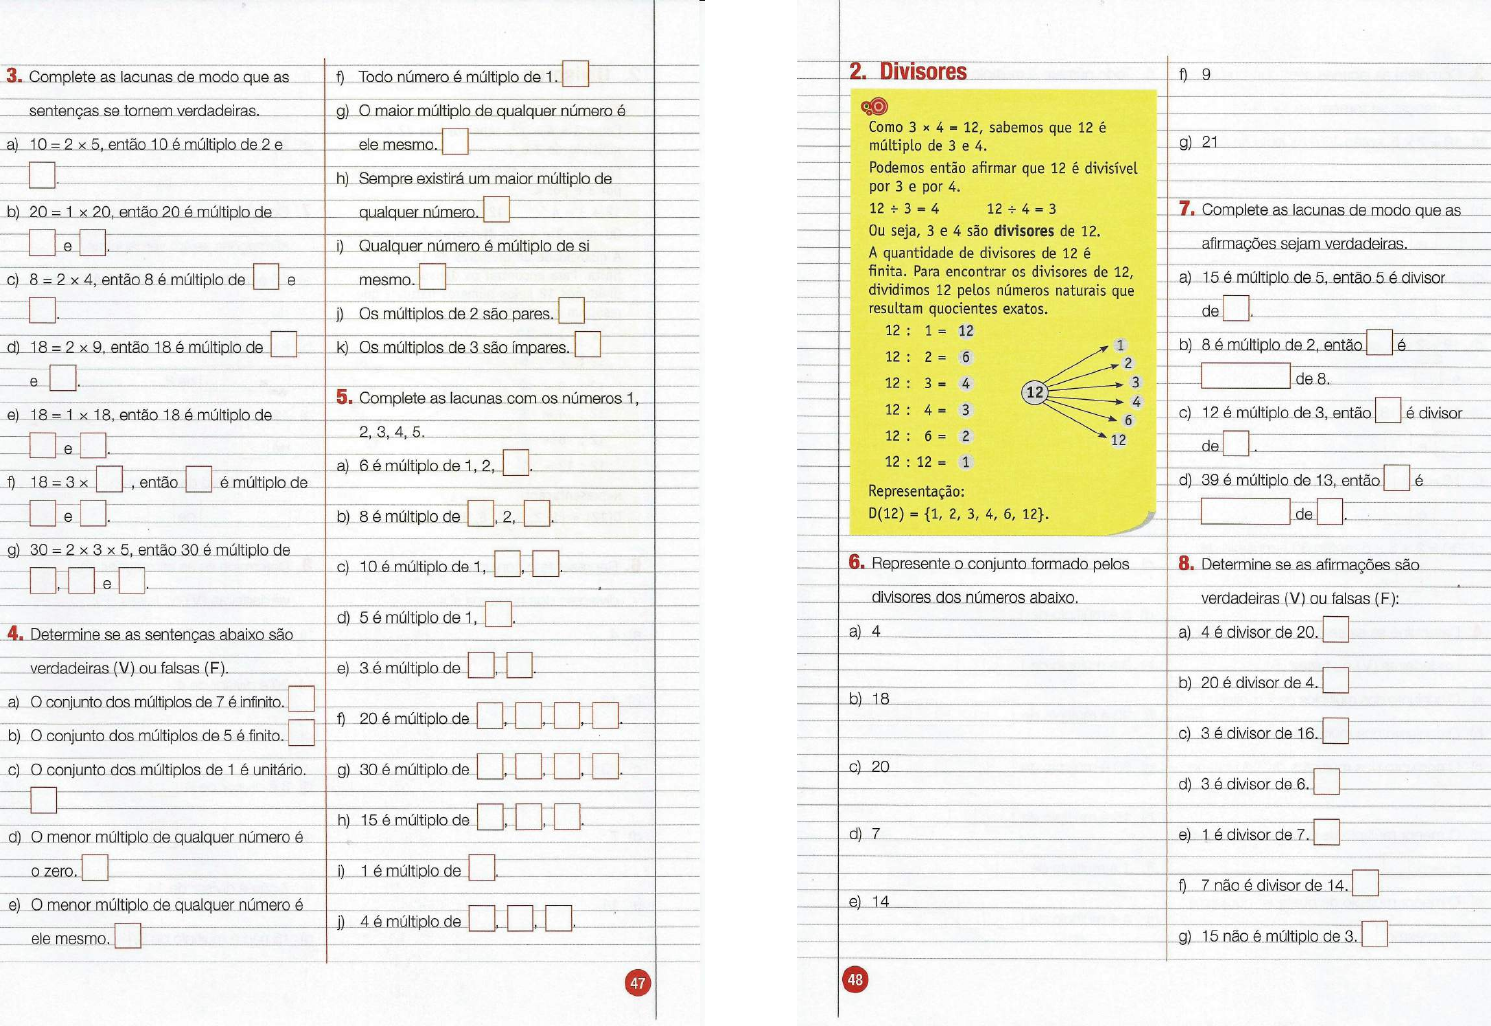 3. Complete as lacunas de modo que as
sentenças se tornem verdadeiras.
a) 10 = 2 × 5, então 10 é múltiplo de 2 e
.
b) 20 = 1 × 20, então 20 é múltiplo de
e .
c) 8 = 2 × 4, então 8 é múltiplo de e
.
d) 18 = 2 × 9, então 18 é múltiplo de
e .
e) 18 = 1 × 18, então 18 é múltiplo de
e .
f) 18 = 3 × , então é múltiplo de
e .
g) 30 = 2 × 3 × 5, então 30 é múltiplo de
, e .
4. Determine se as sentenças abaixo são
verdadeiras (V) ou falsas (F).
a) O conjunto dos múltiplos de 7 é infinito.
b) O conjunto dos múltiplos de 5 é finito.
c) O conjunto dos múltiplos de 1 é unitário.
d) O menor múltiplo de qualquer número é
o zero.
e) O menor múltiplo de qualquer número é
ele mesmo.
f) Todo número é múltiplo de 1.
g) O maior múltiplo de qualquer número é
ele mesmo.
h) Sempre existirá um maior múltiplo de
qualquer número.
i) Qualquer número é múltiplo de si
mesmo.
j) Os múltiplos de 2 são pares.
k) Os múltiplos de 3 são ímpares.
5. Complete as lacunas com os números 1,
2, 3, 4, 5.
a) 6 é múltiplo de 1, 2, .
b) 8 é múltiplo de , 2, .
c) 10 é múltiplo de 1, , .
d) 5 é múltiplo de 1, .
e) 3 é múltiplo de , .
f) 20 é múltiplo de , , , .
g) 30 é múltiplo de , , , .
h) 15 é múltiplo de , , .
i) 1 é múltiplo de .
j) 4 é múltiplo de , , .
47
2. Divisores
Como 3 × 4 = 12, sabemos que 12 é
múltiplo de 3 e 4.
Podemos então afirmar que 12 é divisível
por 3 e por 4.
12 ÷ 3 = 4 12 ÷ 4 = 3
Ou seja, 3 e 4 são divisores de 12.
A quantidade de divisores de 12 é
finita. Para encontrar os divisores de 12,
dividimos 12 pelos números naturais que
resultam quocientes exatos.
12 : 1 = 12
12 : 2 = 6
12 : 3 = 4
12 : 4 = 3
12 : 6 = 2
12 : 12 = 1
12
1
2
3
4
6
12
Representação:
D(12) = {1, 2, 3, 4, 6, 12}.
6. Represente o conjunto formado pelos
divisores dos números abaixo.
a) 4
b) 18
c) 20
d) 7
e) 14
f) 9
g) 21
7. Complete as lacunas de modo que as
afirmações sejam verdadeiras.
a) 15 é múltiplo de 5, então 5 é divisor
de .
b) 8 é múltiplo de 2, então é
de 8.
c) 12 é múltiplo de 3, então é divisor
de .
d) 39 é múltiplo de 13, então é
de .
8. Determine se as afirmações são
verdadeiras (V) ou falsas (F):
a) 4 é divisor de 20.
b) 20 é divisor de 4.
c) 3 é divisor de 16.
d) 3 é divisor de 6.
e) 1 é divisor de 7.
f) 7 não é divisor de 14.
g) 15 não é múltiplo de 3.
48